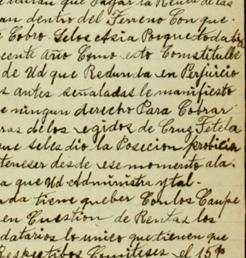 que Pagar la Renta de las
an dentro del Terreno Con que
Cobro Selos Asia Bosque todabia
cente año Como esto Constitulle
de Ud que Redunda en Perjuicio
s antes señaladas le manifiesto
e ningun derecho Para Cobrar
ras de los egidos de Cruz Tetela
que se les dio la Posecion
teneser desde ese momento a la
a que Ud Administra y tal
nda tiene que ber Con los Campe
en Cuestion de Rentas los
datarios lo unico que tienen que
Respectibos Comitises el 15%